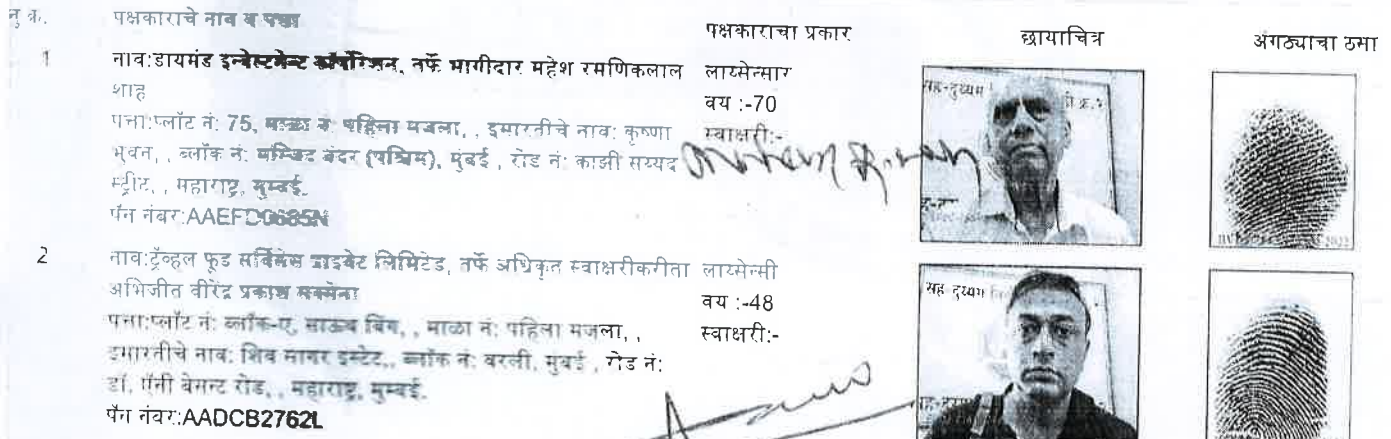 नु क्र. पक्षकाराचे नाव व पत्ता पक्षकाराचा प्रकार छायाचित्र अंगठ्याचा ठसा
1 नाव:डायमंड इन्वेस्टमेन्ट कॉर्पोरेशन, तर्फे भागीदार महेश रमणिकलाल लायसेन्सार
शाह वय :-70
पत्ता:प्लॉट नं: 75, माळा नं: पहिला मजला, , इमारतीचे नाव: कृष्णा स्वाक्षरी:-
भुवन, , ब्लॉक नं: मस्जिद बंदर (पश्चिम), मुंबई , रोड नं: काझी सय्यद
स्ट्रीट, , महाराष्ट्र, मुम्बई.
पॅन नंबर:AAEFD0685N
2 नाव:ट्रॅव्हल फूड सर्विसेस प्राइवेट लिमिटेड, तर्फे अधिकृत स्वाक्षरीकरीता लायसेन्सी
अभिजीत वीरेंद्र प्रकाश सक्सेना वय :-48
पत्ता:प्लॉट नं: ब्लॉक-ए, साऊथ विंग, , माळा नं: पहिला मजला, , स्वाक्षरी:-
इमारतीचे नाव: शिव सागर इस्टेट,, ब्लॉक नं: वरली, मुंबई , रोड नं:
डॉ. ऍनी बेसन्ट रोड, , महाराष्ट्र, मुम्बई.
पॅन नंबर:AADCB2762L
सह-दुय्यम
सह-दुय्यम